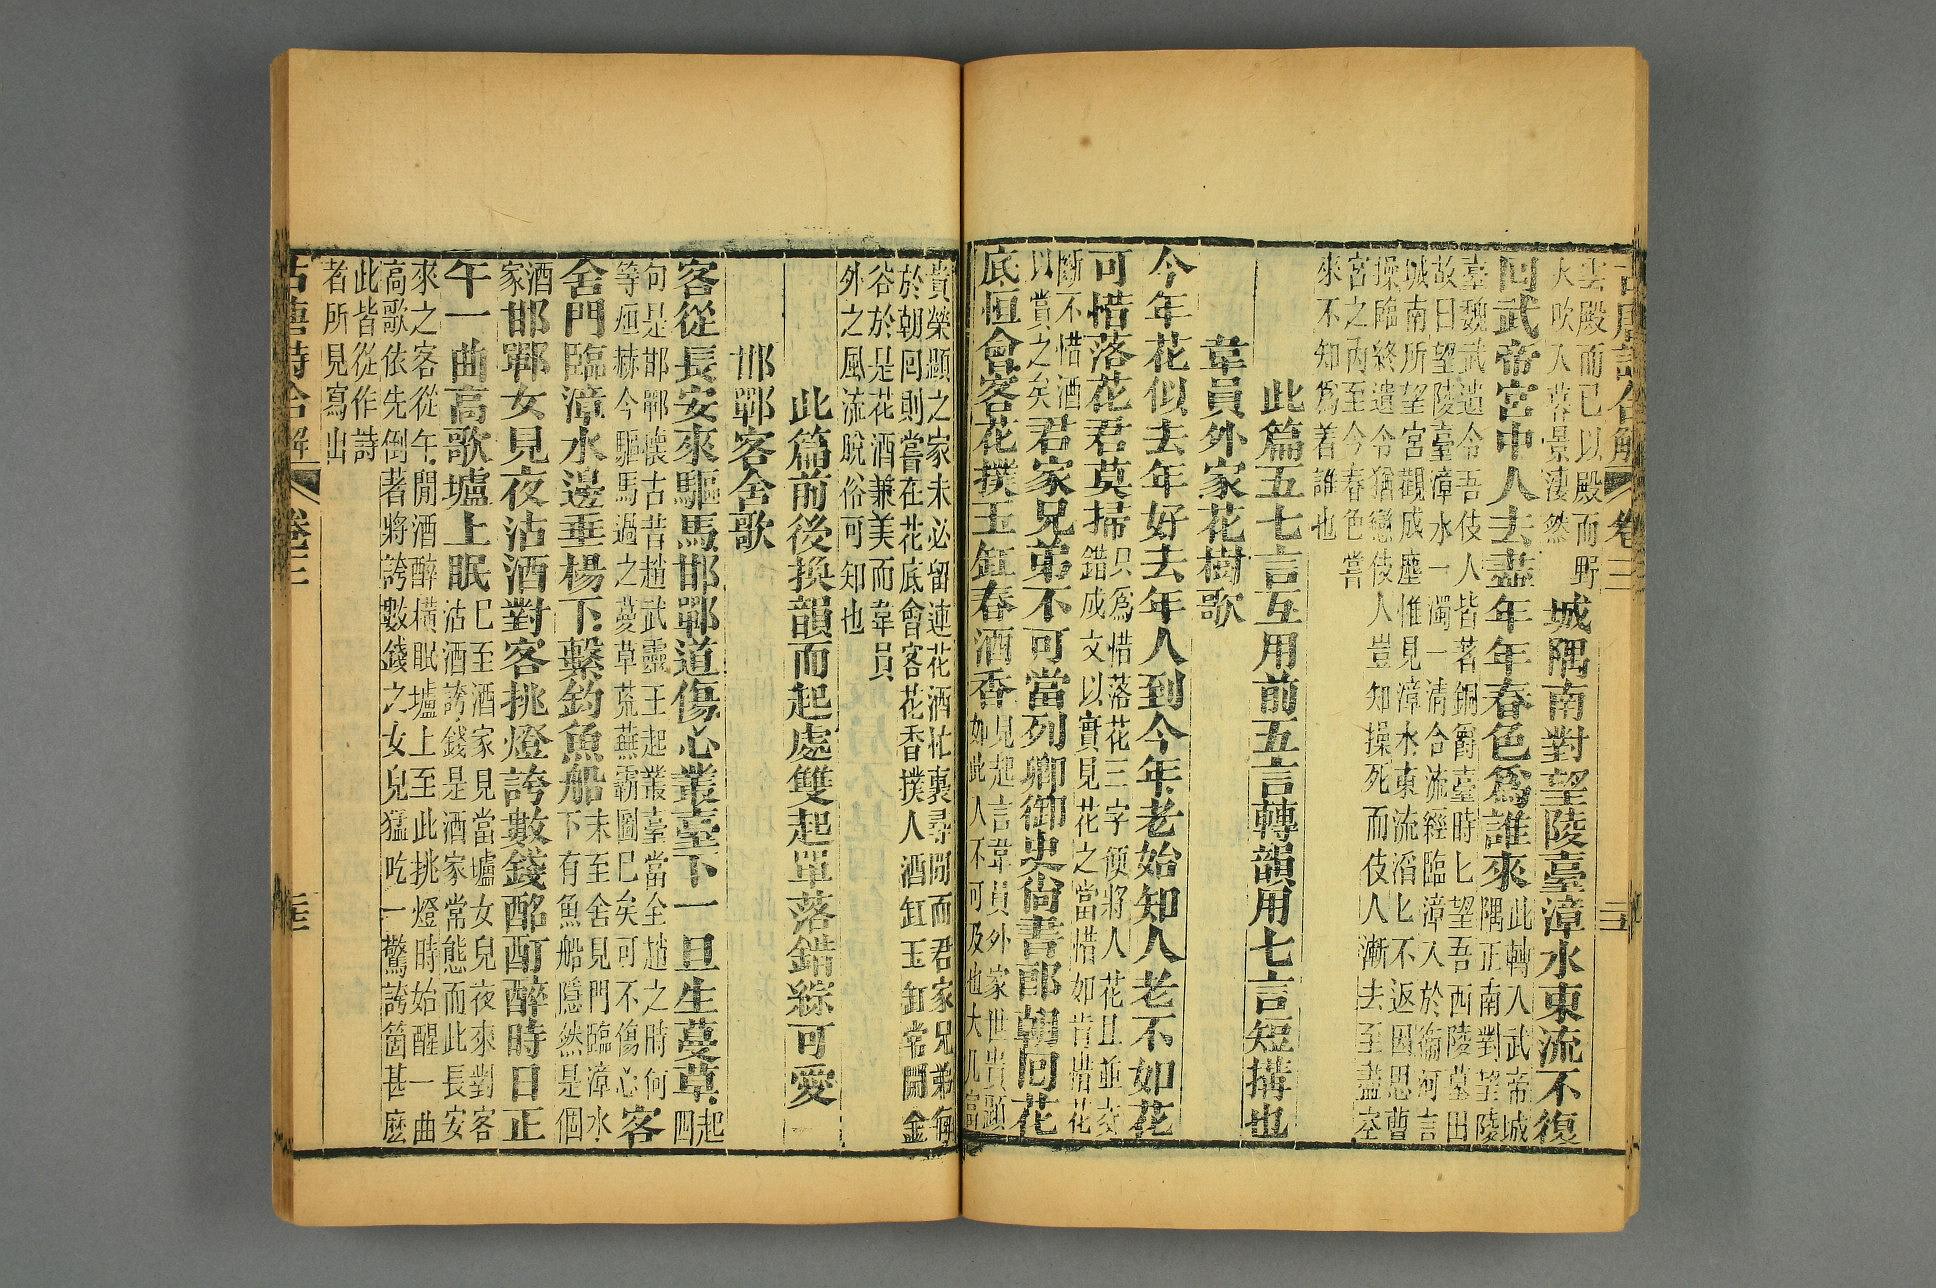 雲殿而已以殿而野
火吹人落景淒然
城隅南對望陵臺漳水東流不復
回武帝宮中人去盡年年春色為誰來
此轉入武帝城
隅正南對望陵
臺魏武遺令吾伎人皆著銅爵臺時匕望吾西陵墓田
故曰望陵臺漳水一濁一清合流經臨漳入於衛河言
城南所望宮觀成塵惟見漳水東流滔匕不返因思曹
操臨終遺令猶戀伎人豈知操死而伎人漸去至盡空
宮之內至今春色嘗
來不知為着誰也
此篇五七言互用前五言轉韻用七言短搆也
韋員外家花樹歌
今年花似去年好去年人到今年老始知人老不如花
可惜落花君莫掃
只為惜落花三字便將人花且並交
錯成文以實見花之當惜如肯惜花
斷不惜酒
以賞之矣
君家兄弟不可當列卿御史尚書郎朝回花
底恒會客花撲玉缸春酒香
見起言韋員外家世貴顯
如此人不可及也大凡富
貴榮顯之家未必留連花酒忙裏尋閒而君家兄弟何
於朝回則嘗在花底會客花香撲人酒缸玉缸常開金
谷於是花酒兼美而韋員
外之風流脫俗可知也
此篇前後換韻而起處雙起單落錯綜可愛
邯鄲客舍歌
客從長安來驅馬邯鄲道傷心叢臺下一旦生蔓草
起
四
句是邯鄲懷古昔趙武靈王起叢臺當全趙之時何
等烜赫今驅馬過之蔓草荒蕪霸圖已矣可不傷心
客
舍門臨漳水邊垂楊下繫釣魚船
未至舍見門臨漳水
下有魚船隱然是個
酒
家
邯鄲女兒夜沽酒對客挑燈誇數錢酩酊醉時日正
午一曲高歌壚上眠
已至酒家見當壚女兒夜來對客
沽酒誇錢是酒家常態而此長安
來之客從午閒酒醉橫眠壚上至此挑燈時始醒一曲
高歌依先倒者將誇數錢之女兒猛吃一驚誇箇甚麼
此皆從作詩
者所見寫出
古唐詩合解
卷三